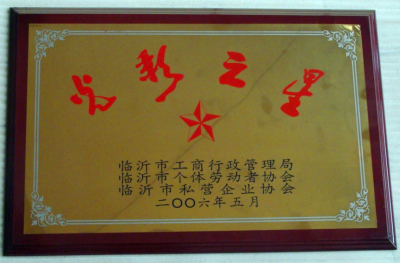 光彩之星
临沂市工商行政管理局
临沂市个体劳动者协会
临沂市私营企业协会
二〇〇六年五月